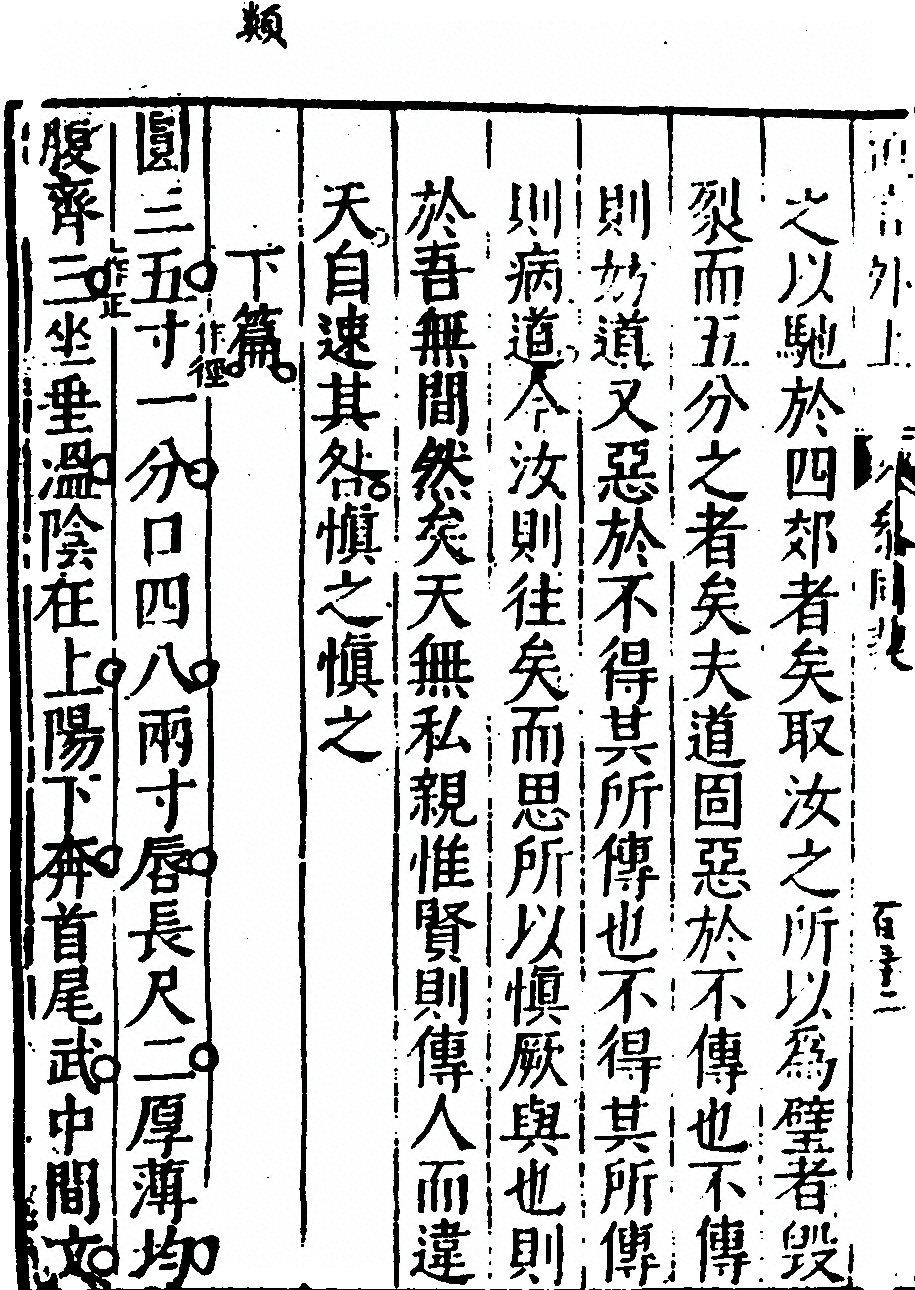 類
之以馳於四郊者矣取汝之所以爲璧者毁
裂而五分之者矣夫道固惡於不傳也不傳
則妨道又惡於不得其所傳也不得其所傳
則病道今汝則往矣而思所以愼厥與也則
於吾無間然矣天無私親惟賢則傳人而違
天自速其咎愼之愼之
下篇
圓三五寸一分口四八兩寸唇長尺二厚薄均
作徑
腹齊三坐垂溫陰在上陽下奔首尾武中間文
作正